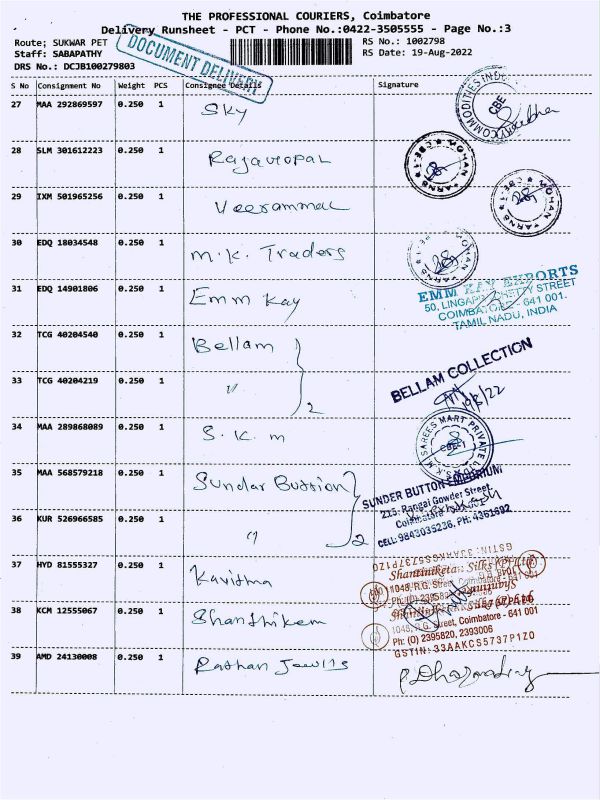 THE PROFESSIONAL COURIERS, Coimbatore
Delivery Runsheet - PCT - Phone No.:0422-3505555 - Page No.:3
Route; SUKWAR PET
RS No.: 1002798
Staff: SABAPATHY
RS Date: 19-Aug-2022
DRS No.: DCJB100279803
DOCUMENT DELIVERY
S No Consignment No Weight PCS Consignee Details Signature
27 MAA 292869597 0.250 1 Sky
COMMODITIES CBE
28 SLM 301612223 0.250 1 Rajagopal
MOHAN YARNS CBE-1
29 IXM 501965256 0.250 1 Veerammal
MOHAN YARNS CBE-1
30 EDQ 18034548 0.250 1 M.K. Traders
YARNS
31 EDQ 14901806 0.250 1 Emm Kay
EMM KAY EXPORTS
50, LINGAPPA CHETTY STREET
COIMBATORE - 641 001.
TAMIL NADU, INDIA
32 TCG 40204540 0.250 1 Bellam
33 TCG 40204219 0.250 1 " 2
BELLAM COLLECTION
19/8/22
34 MAA 289868089 0.250 1 S.K.M
S.K.M SAREES MART PRIVATE CBE-1
35 MAA 568579218 0.250 1 Sundar Button
SUNDER BUTTON EMPORIUM
215, Rangai Gowder Street,
Coimbatore
CELL: 9843035236, PH: 4351692
36 KUR 526966585 0.250 1 " 2
37 HYD 81555327 0.250 1 Kavitha
GSTIN: 33AAKCS5737P1Z0
Shantiniketan Silks (P) Ltd
1048, R.G. Street, Coimbatore - 641 001
38 KCM 12555067 0.250 1 Shanthikem
1048, R.G. Street, Coimbatore - 641 001
Ph: (0) 2395820, 2393006
GSTIN: 33AAKCS5737P1Z0
39 AMD 24130008 0.250 1 Rathan Jewlls